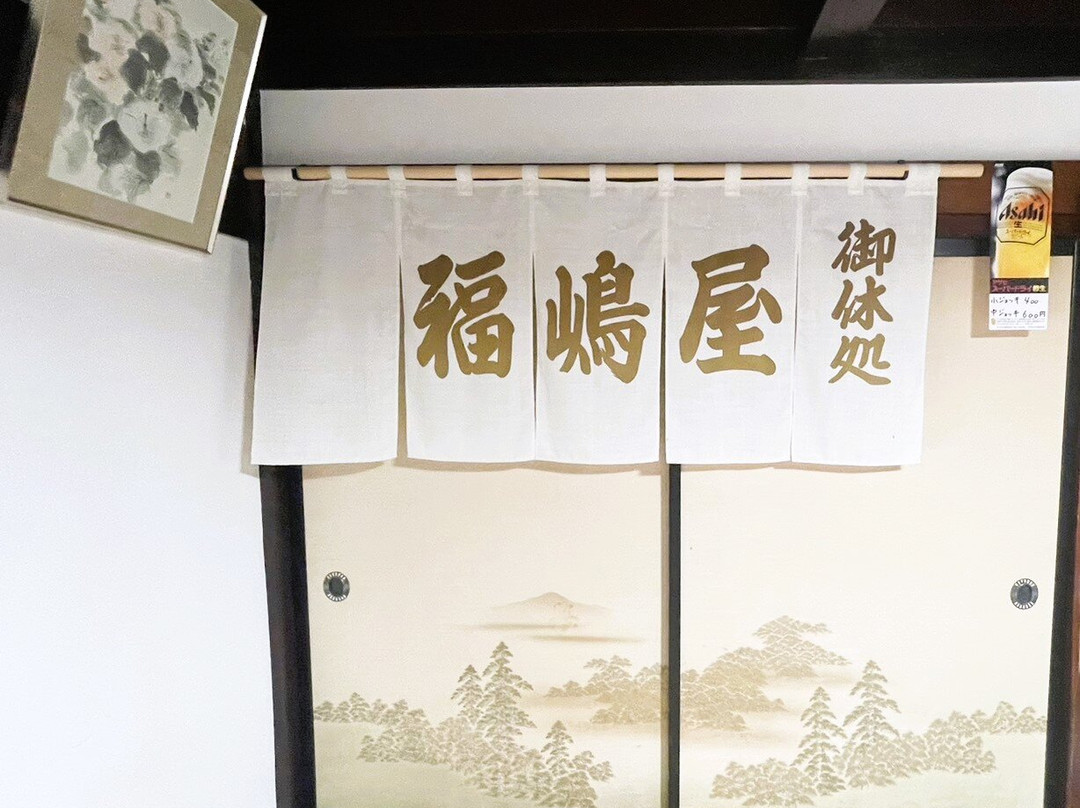 福嶋屋
御休処
Asahi
生
スーパードライ
小ジョッキ 400
中ジョッキ 600円